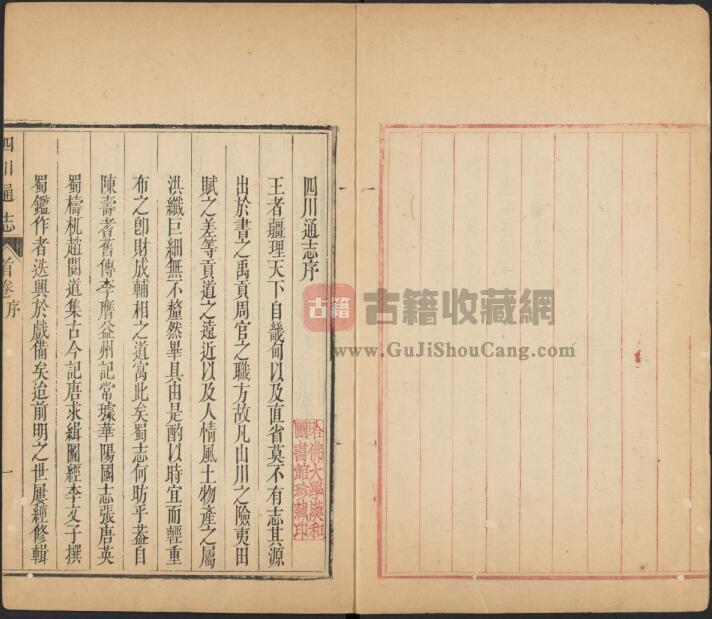 四川通志序
王者疆理天下自畿甸以及直省莫不有志其源
出於書之禹貢周官之職方故凡山川之險夷田
賦之差等貢道之遠近以及人情風土物產之屬
洪纖巨細無不釐然畢具由是酌以時宜而輕重
布之卽財成輔相之道寓此矣蜀志何昉乎葢自
陳壽耆舊傳李膺益州記常璩華陽國志張唐英
蜀檮杌趙閱道集古今記唐求緝圖經李文子撰
蜀鑑作者迭興於戲備矣迨前明之世屢經修輯
四川通志
首卷 序
一
哈佛大學漢和
圖書館珍藏印
古籍
古籍收藏網
www.GuJiShouCang.com